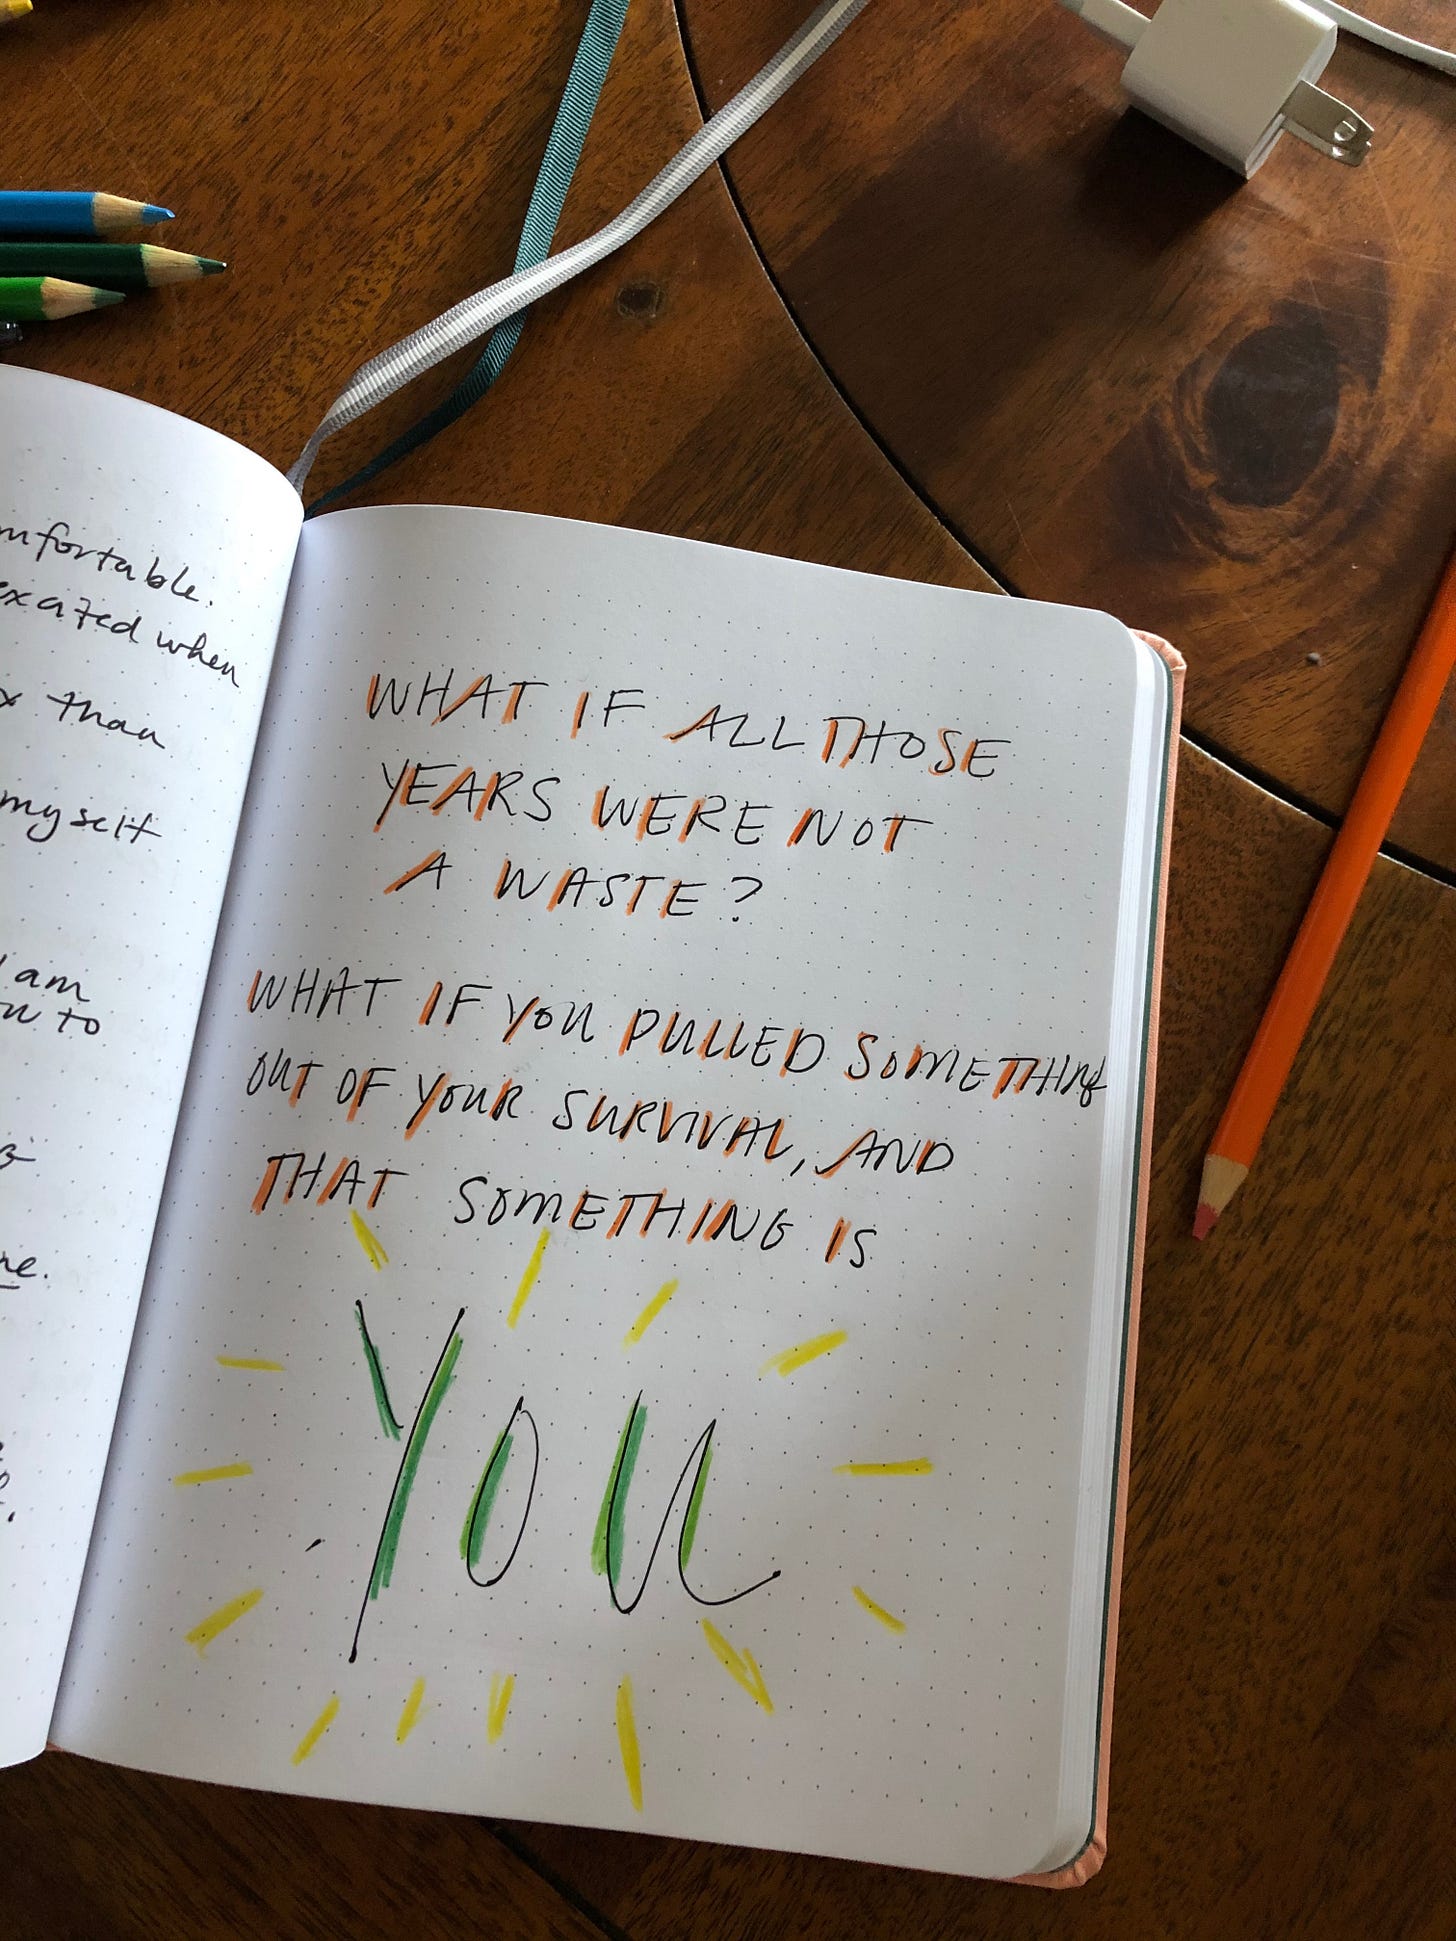 when
than
myself
am
to
WHAT IF ALL THOSE
YEARS WERE NOT
A WASTE?
WHAT IF YOU PULLED SOMETHING
OUT OF YOUR SURVIVAL, AND
THAT SOMETHING IS
YOU